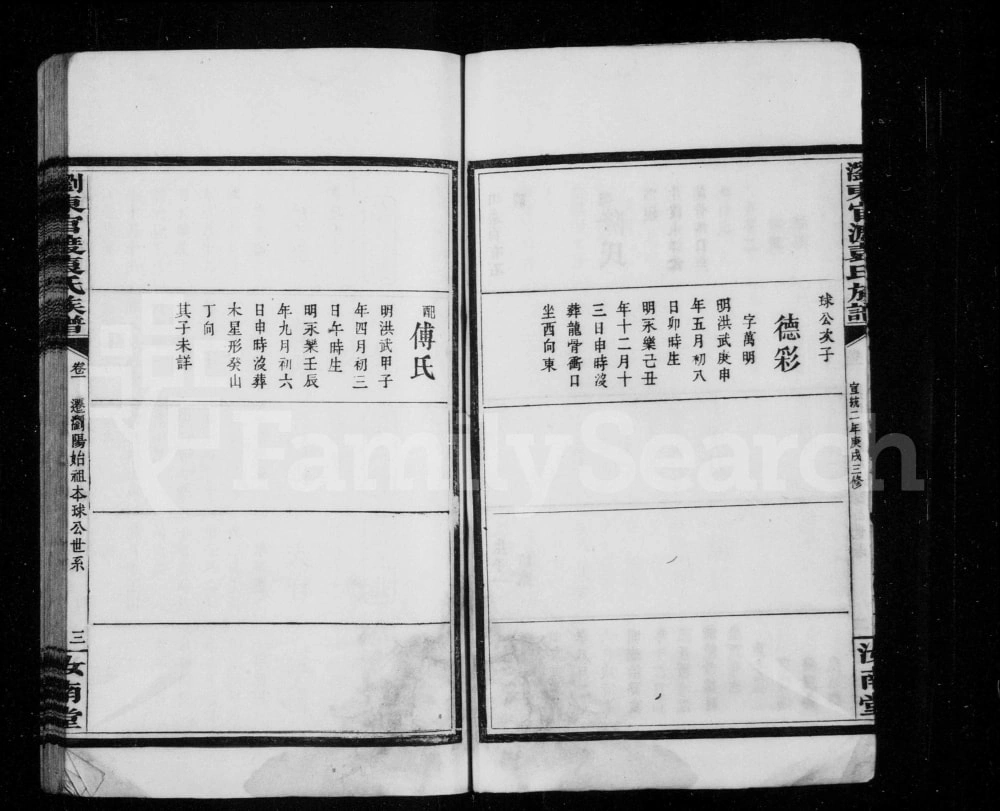 瀏東官渡袁氏族譜
宣統二年庚戌三修
汝南堂
球公次子
德彩
字萬明
明洪武庚申
年五月初八
日卯時生
明永樂己丑
年十二月十
三日申時沒
葬龍骨衝口
坐西向東
配
傅氏
明洪武甲子
年四月初三
日午時生
明永樂壬辰
年九月初六
日申時沒葬
木星形癸山
丁向
其子未詳
瀏東官渡袁氏族譜
卷一
遷瀏陽始祖本球公世系
三
汝南堂
FamilySearch